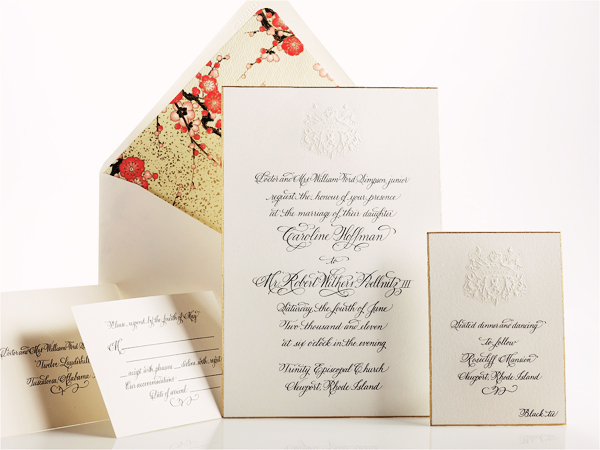 Doctor and Mrs. William Ford Simpson, junior
request the honour of your presence
at the marriage of their daughter
Caroline Hoffman
to
Mr. Robert Withers Podlnitz III
Saturday, the fourth of June
Two thousand and eleven
at six o'clock in the evening
Trinity Episcopal Church
Newport, Rhode Island
Seated dinner and dancing
to follow
Rosecliff Mansion
Newport, Rhode Island
Black tie
Please respond by the fourth of May
M
accept with pleasure decline with regret
Our accommodations
Date of arrival
Doctor and Mrs. William Ford
Twelve
Tuscaloosa, Alabama